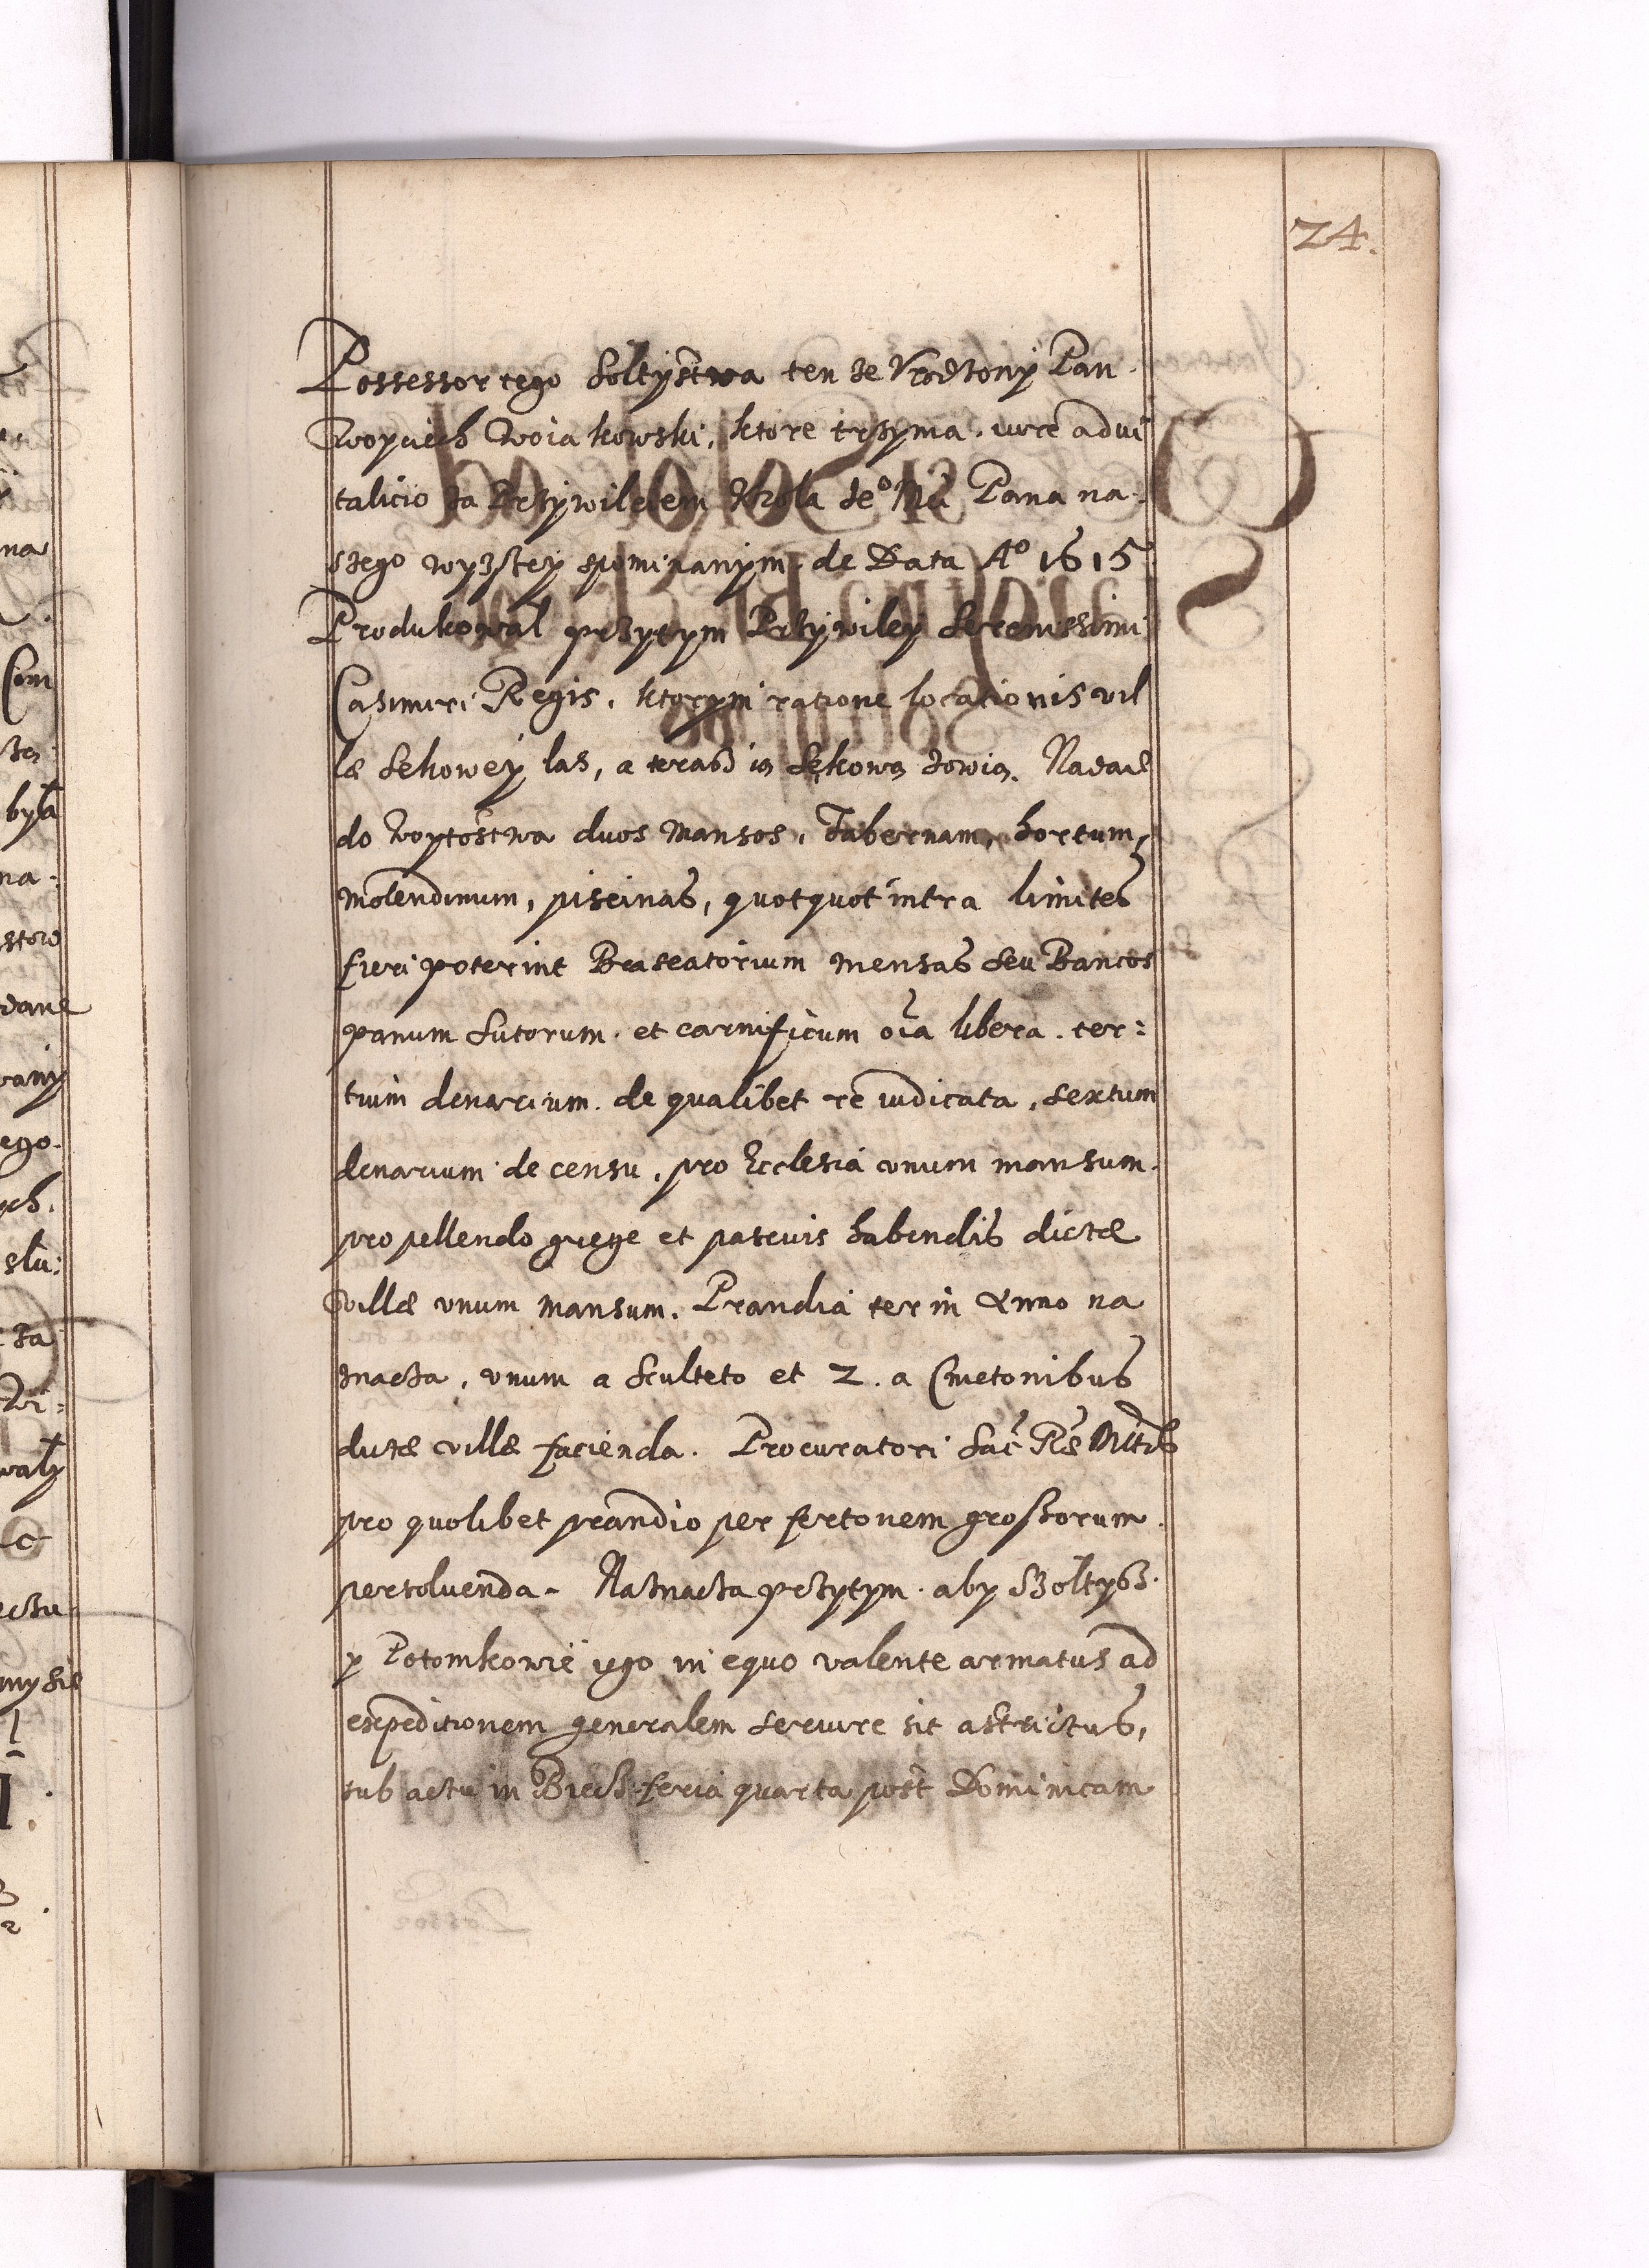 24.
Possessor tego Soltystwa ten ze Vrodzony Pan
Woyciech Woiakowski, ktore trzyma iure advi
talicio za Przywileiem Krola Je° Mci Pana na:
szego wyzszey spominanym de Data A° 1615
Produkowal przytym Przywiley Serenissimi
Casimiri Regis, ktorym ratione locationis vil
læ Sekowey las, a teraz ią Sękową zowią. Nadaie
do Woytostwa duos mansos, Tabernam, hortum,
molendinum, piscinas, quotquot intra limites
fieri poterint Braseatorium mensas seu Bancos
panum sutorum et carnificum oīa libera ter:
tium denarium de qualibet re iudicata, sextum
denarium de censu, pro Ecclesia vnum mansum.
pro pellendo grege et pascuis habendis dictæ
villæ vnum mansum. Prandia ter in Anno na
znacza, vnum a Sculteto et 2. a Cmetonibus
dictæ villæ facienda. Procuratori Sac Ræ Mttis
pro quolibet prandio per fertonem grossorum
persoluenda. Naznacza przytym aby Szoltysz
y Potomkowie iego in equo valente armatus ad
expeditionem generalem seruire sit astrictus,
sub actu in Biecz feria quarta post Dominicam